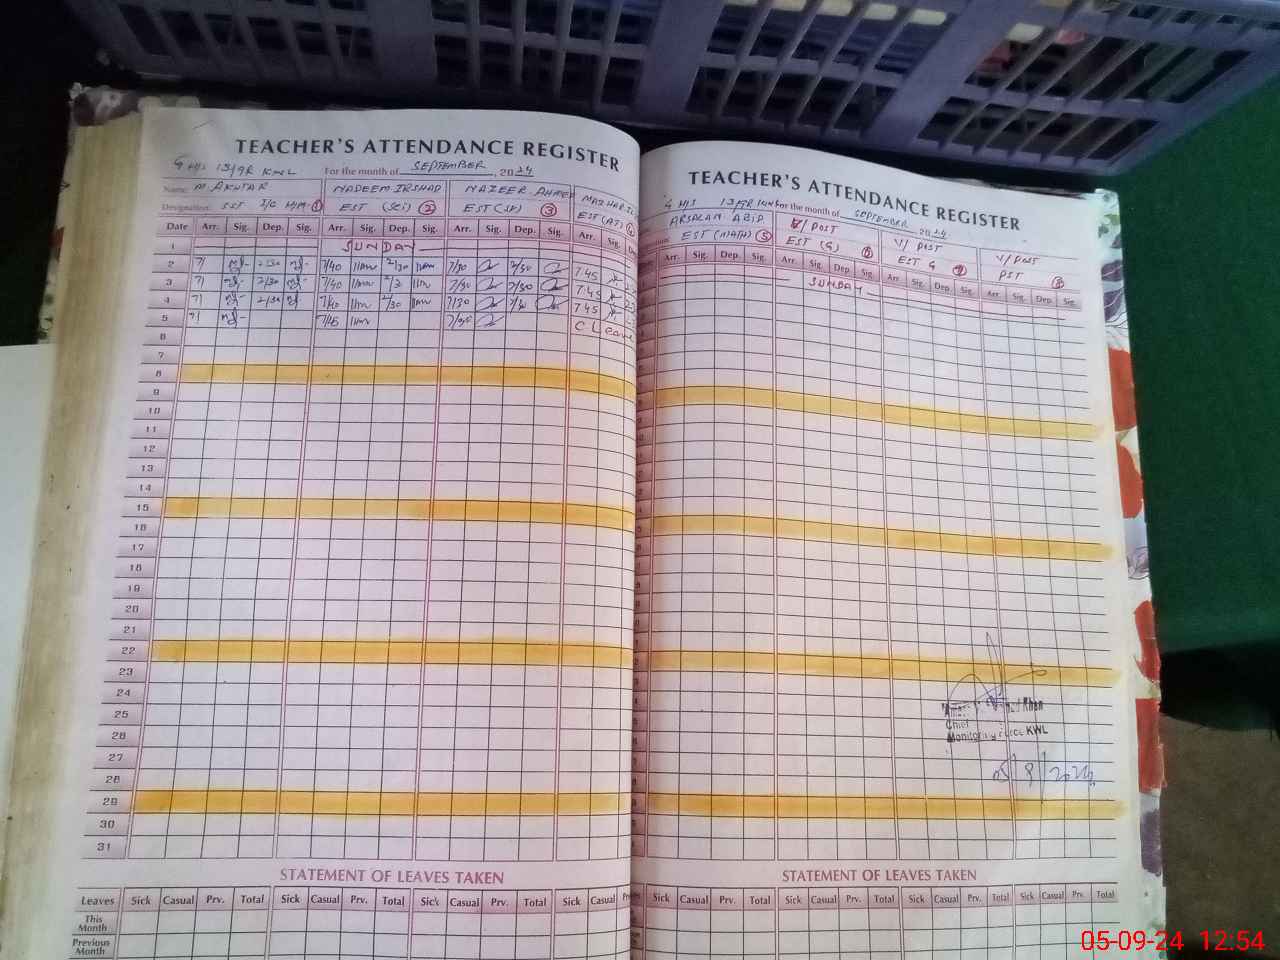 TEACHER'S ATTENDANCE REGISTER
G H/S 13/9R KWL For the month of SEPTEMBER, 2024
Name: M. AKHTAR NADEEM IRSHAD NAZEER AHMED
Designation: SST I/C H/M ① EST (SCi) ② EST (SV) ③ EST (AT) ④
Date Arr. Sig. Dep. Sig. Arr. Sig. Dep. Sig. Arr. Sig. Dep. Sig. Arr. Sig.
1 SUNDAY
2 2/30 7/40 2/30 7/30 2/30 7 45
3 2/30 7/40 7/30 2/30 7 45
4 2/30 7/40 2/30 7/30 7 45
5 7/45 C Leave
6
7
8
9
10
11
12
13
14
15
16
17
18
19
20
21
22
23
24
25
26
27
28
29
30
31
STATEMENT OF LEAVES TAKEN
Leaves Sick Casual Prv. Total Sick Casual Prv. Total Sick Casual Prv. Total Sick Casual
This Month
Previous Month
TEACHER'S ATTENDANCE REGISTER
G H/S 13/9R KWL For the month of SEPTEMBER 2024
ARSALAN ABID V/ POST V/ POST V/ POST
EST (MATH) ⑤ EST (G) ⑥ EST G ⑦ PST ⑧
Arr. Sig. Dep. Sig. Arr. Sig. Dep. Sig. Arr. Sig. Dep. Sig. Arr. Sig. Dep. Sig.
SUNDAY
Khan
Chief
Monitoring KWL
STATEMENT OF LEAVES TAKEN
Sick Casual Prv. Total Sick Casual Prv. Total Sick Casual Prv. Total Sick Casual Prv. Total
05-09-24 12:54